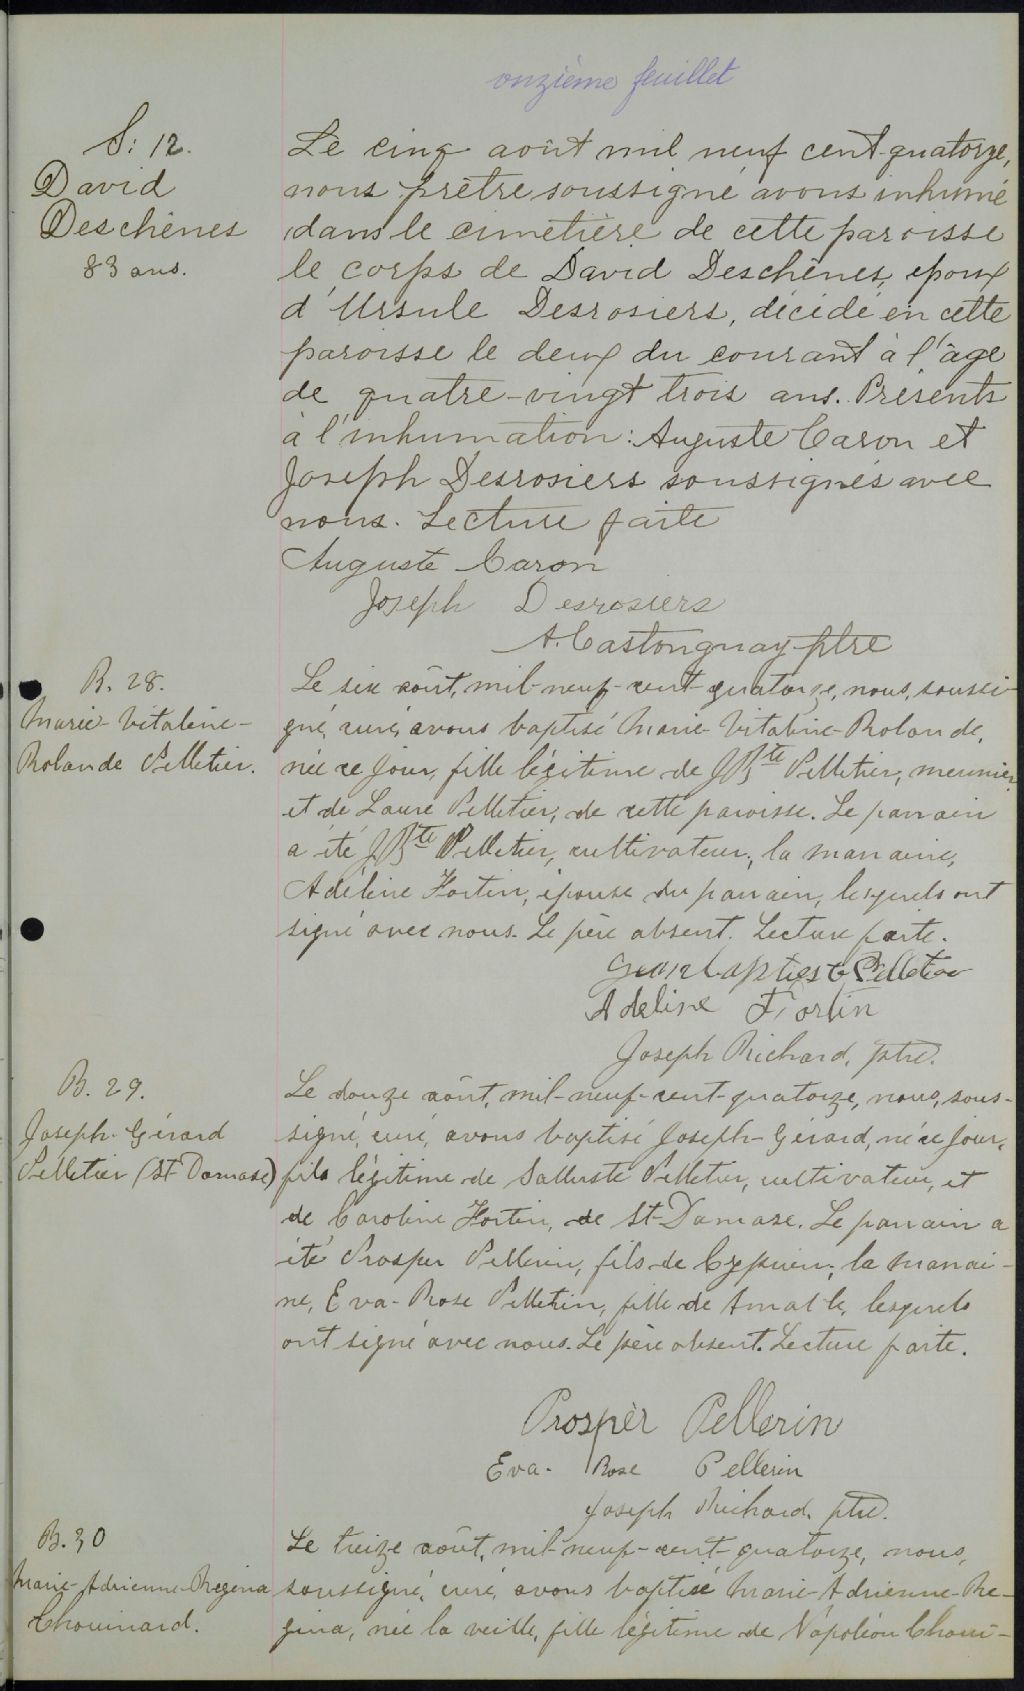 onzième feuillet
S: 12.
David
Deschênes
83 ans.
Le cinq août mil neuf cent quatorze,
nous prêtre soussigné avons inhumé
dans le cimetière de cette paroisse
le corps de David Deschênes, époux
d'Ursule Desrosiers, décédé en cette
paroisse le deux du courant à l'âge
de quatre-vingt trois ans. Présents
à l'inhumation: Auguste Caron et
Joseph Desrosiers soussignés avec
nous. Lecture faite
Auguste Caron
Joseph Desrosiers
A. Castonguay ptre
B. 28.
Marie-Vitaline-
Rolande Pelletier.
Le six août, mil-neuf-cent-quatorze, nous, soussi-
gné, curé, avons baptisé Marie-Vitaline-Rolande,
née ce jour, fille légitime de J Bte Pelletier, meunier,
et de Laure Pelletier, de cette paroisse. Le parrain
a été J Bte Pelletier, cultivateur; la marraine,
Adéline Fortin, épouse du parrain, lesquels ont
signé avec nous. Le père absent. Lecture faite.
Jean baptiste Pelletier
Adeline Fortin
Joseph Richard, ptre.
B. 29.
Joseph-Gérard
Pelletier (St Damase)
Le douze août, mil-neuf-cent-quatorze, nous, sous-
signé, curé, avons baptisé Joseph-Gérard, né ce jour,
fils légitime de Salluste Pelletier, cultivateur, et
de Caroline Fortin, de St-Damase. Le parrain a
été Prosper Pellerin, fils de Cyprien; la marrai-
ne, Eva-Rose Pelletin, fille de Amable, lesquels
ont signé avec nous. Le père absent. Lecture faite.
Prospèr Pellerin
Eva-Rose Pellerin
Joseph Richard, ptre.
B. 30
Marie-Adrienne-Regina
Chouinard.
Le treize août, mil-neuf-cent quatorze, nous,
soussigné, curé, avons baptisé Marie-Adrienne-Re-
gina, née la veille, fille légitime de Napoléon Choui-